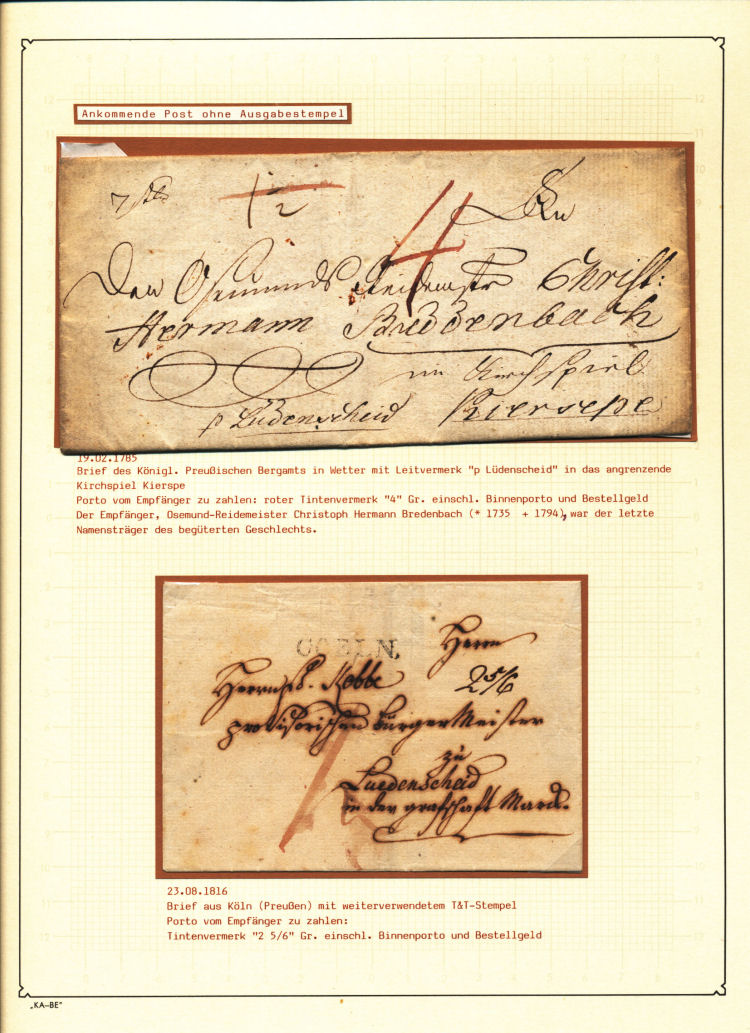 Ankommende Post ohne Ausgabestempel
1/2
4
An
Den Osemunds Reidemstr Christ:
Hermann Breddenbach
im Kirchspiel
p Lüdenscheid Kierspe
19.02.1785
Brief des Königl. Preußischen Bergamts in Wetter mit Leitvermerk "p Lüdenscheid" in das angrenzende
Kirchspiel Kierspe
Porto vom Empfänger zu zahlen: roter Tintenvermerk "4" Gr. einschl. Binnenporto und Bestellgeld
Der Empfänger, Osemund-Reidemeister Christoph Hermann Bredenbach (* 1735 + 1794), war der letzte
Namensträger des begüterten Geschlechts.
COELN.
Herrn
Herrn Kobbe
2 5/6
provisorischen Burger Meister
zu
Luedenscheid
in der grafschaft Marck.
23.08.1816
Brief aus Köln (Preußen) mit weiterverwendetem T&T-Stempel
Porto vom Empfänger zu zahlen:
Tintenvermerk "2 5/6" Gr. einschl. Binnenporto und Bestellgeld
„KA–BE"